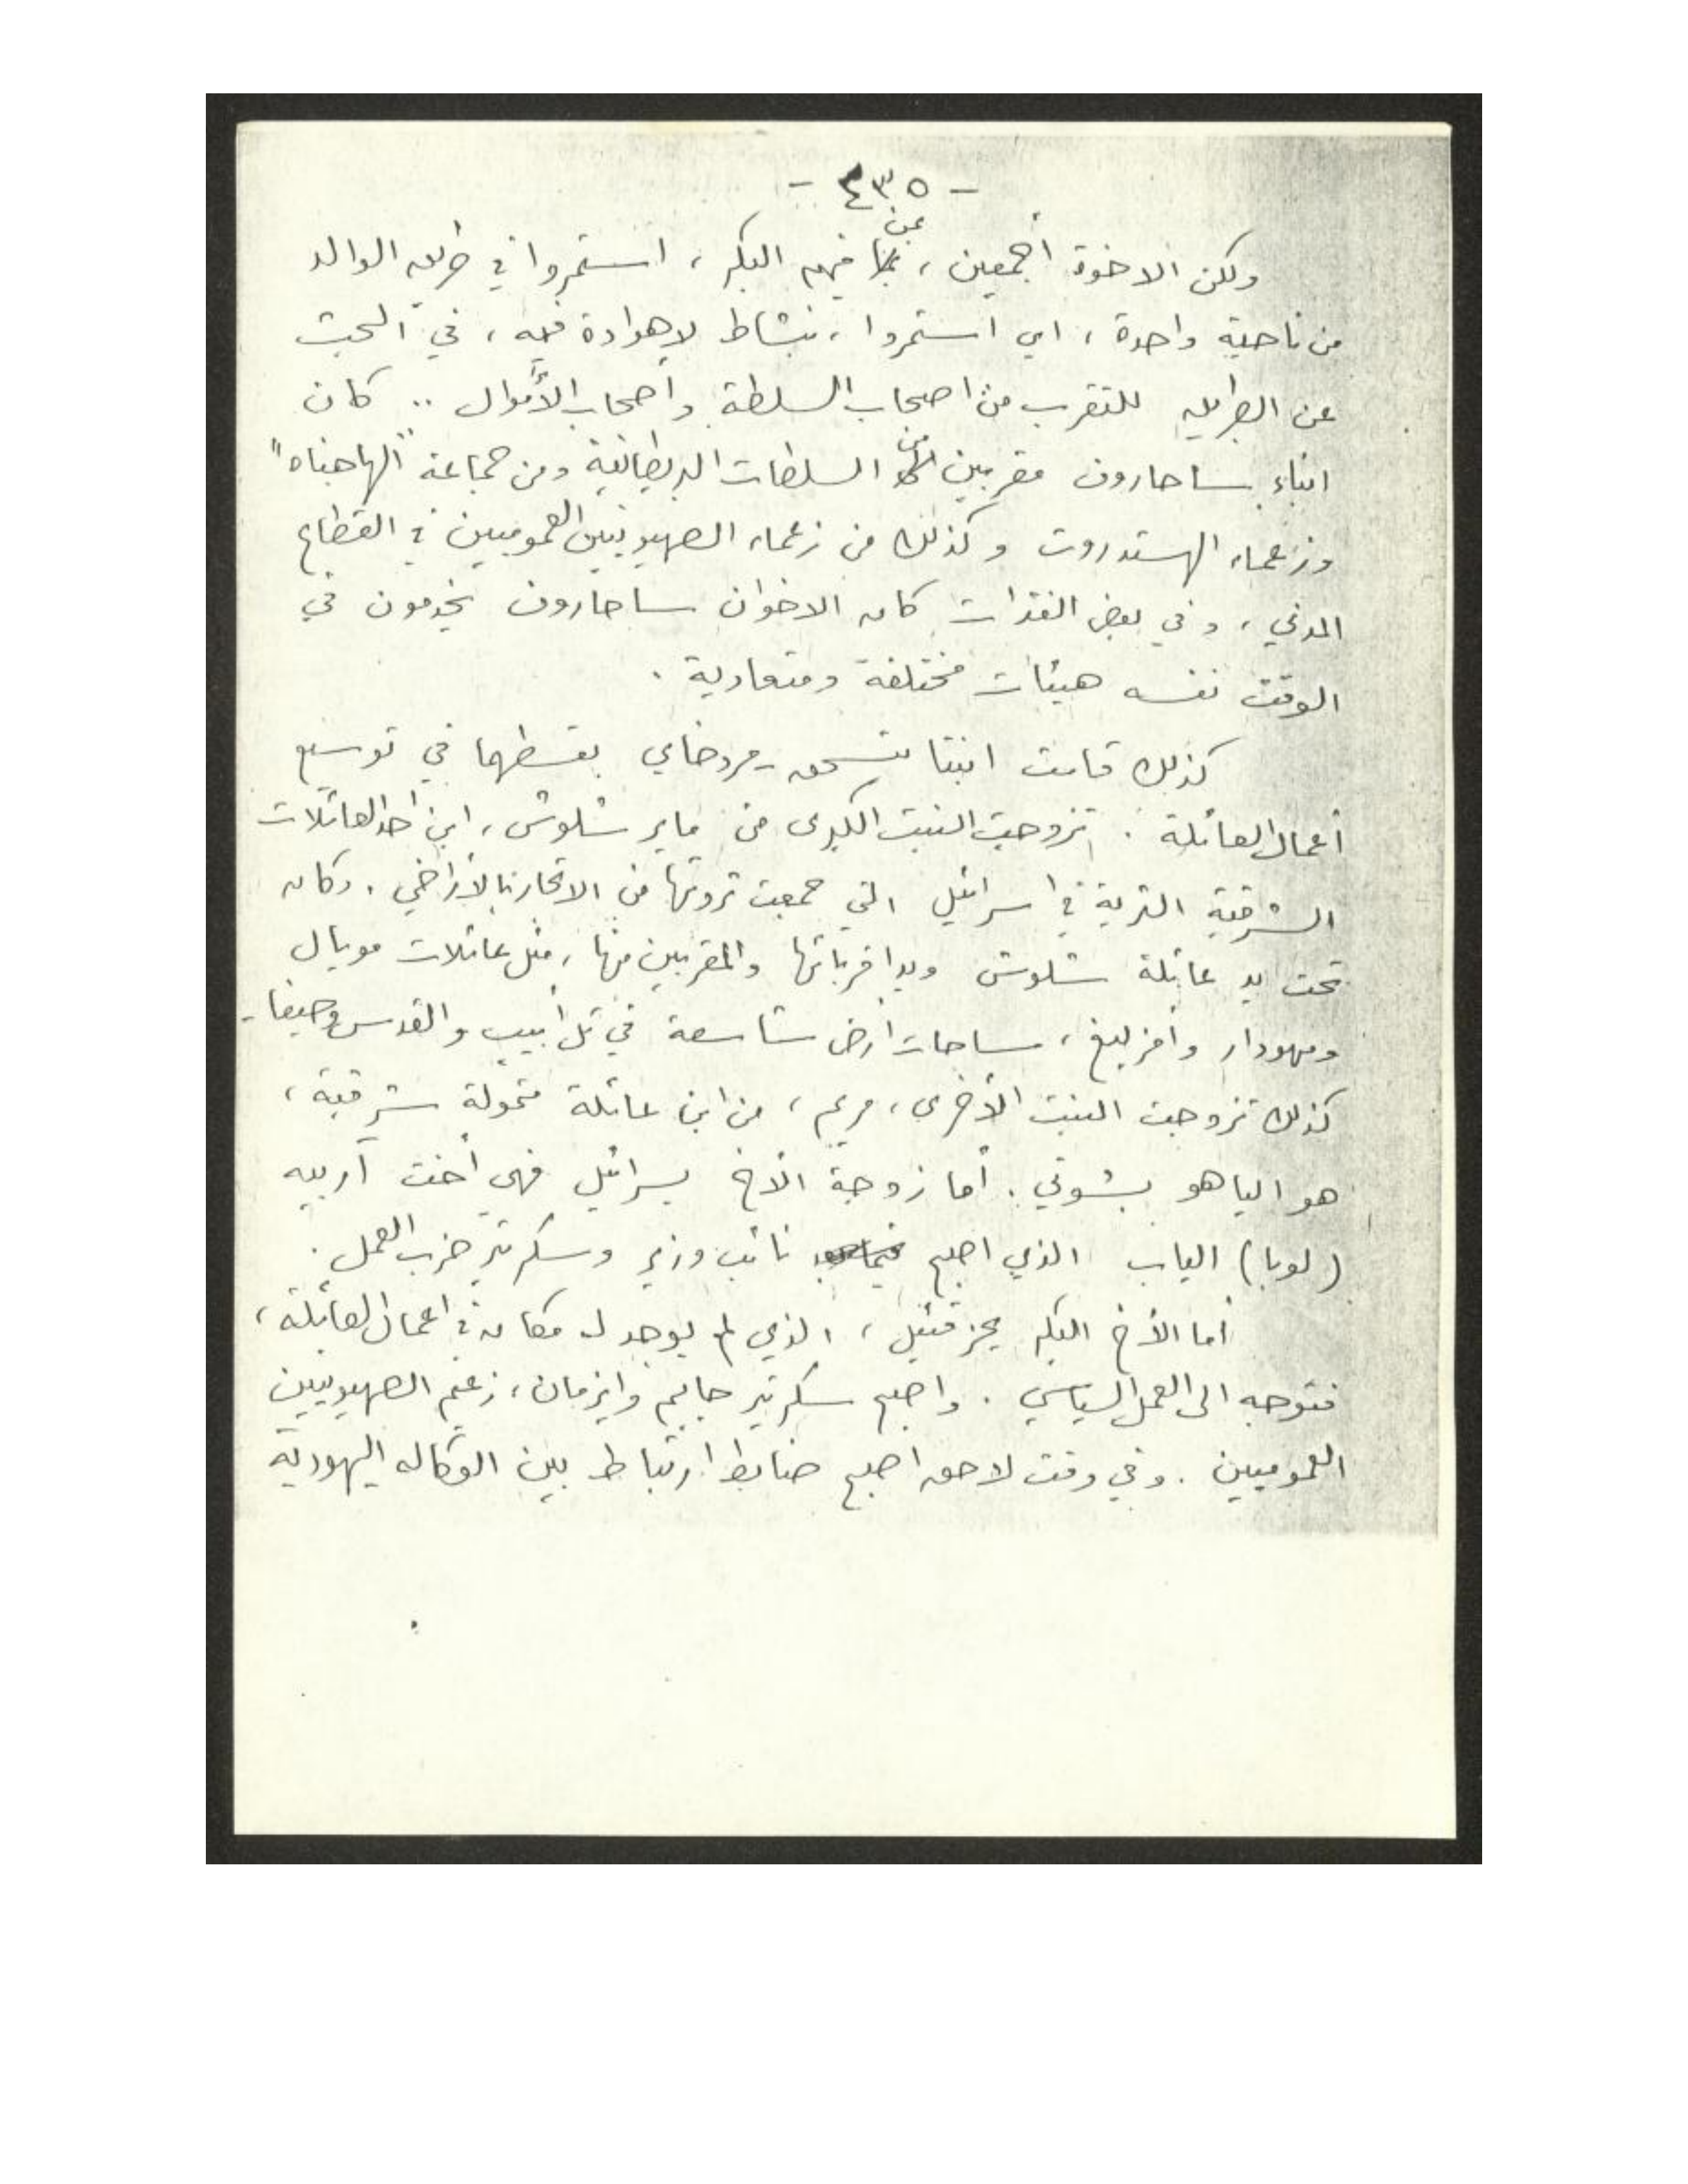 - ٤٣٥ -
ولكن الاخوة أجمعين ، بمن فيهم البكر ، استمروا في طريق الوالد
من ناحية واحدة ، اي استمروا ، بنشاط لا هوادة فيه ، في البحث
عن الطريق للتقرب من اصحاب السلطة وأصحاب الأموال .. كان
ابناء ساحاروف مقربين من السلطات البريطانية ومن جماعة "الهاجناه"
وزعماء الهستدروت وكذلك من زعماء الصهيونيين العموميين في القطاع
المدني ، وفي بعض الفترات كان الاخوان ساحاروف يخدمون في
الوقت نفسه هيئات مختلفة ومتعادية .
كذلك قامت ابنتا يتسحق - مردخاي بقسطهما في توسيع
أعمال العائلة . تزوجت البنت الكبرى من ماير شلوش ، ابن احد العائلات
الشرقية الثرية في اسرائيل التي جمعت ثروتها من الاتجار بالأراضي . وكان
تحت يد عائلة شلوش ويد اقربائها والمقربين منها ، مثل عائلات مويال
ومهودار وأمزليغ ، مساحات أرض شاسعة في تل أبيب والقدس وحيفا -
كذلك تزوجت البنت الأخرى ، مريم ، من ابن عائلة متمولة شرقية ،
هو الياهو بشوتي . أما زوجة الأخ يسرائيل فهي أخت آرييه
(لوبا) الياب الذي اصبح نائب وزير وسكرتير حزب العمل .
أما الأخ البكر يحزقئيل ، الذي لم يوجد له مكان في اعمال العائلة ،
فتوجه الى العمل السياسي . واصبح سكرتير حاييم وايزمان ، زعيم الصهيونيين
العموميين . وفي وقت لاحق اصبح ضابط ارتباط بين الوكاله اليهودية